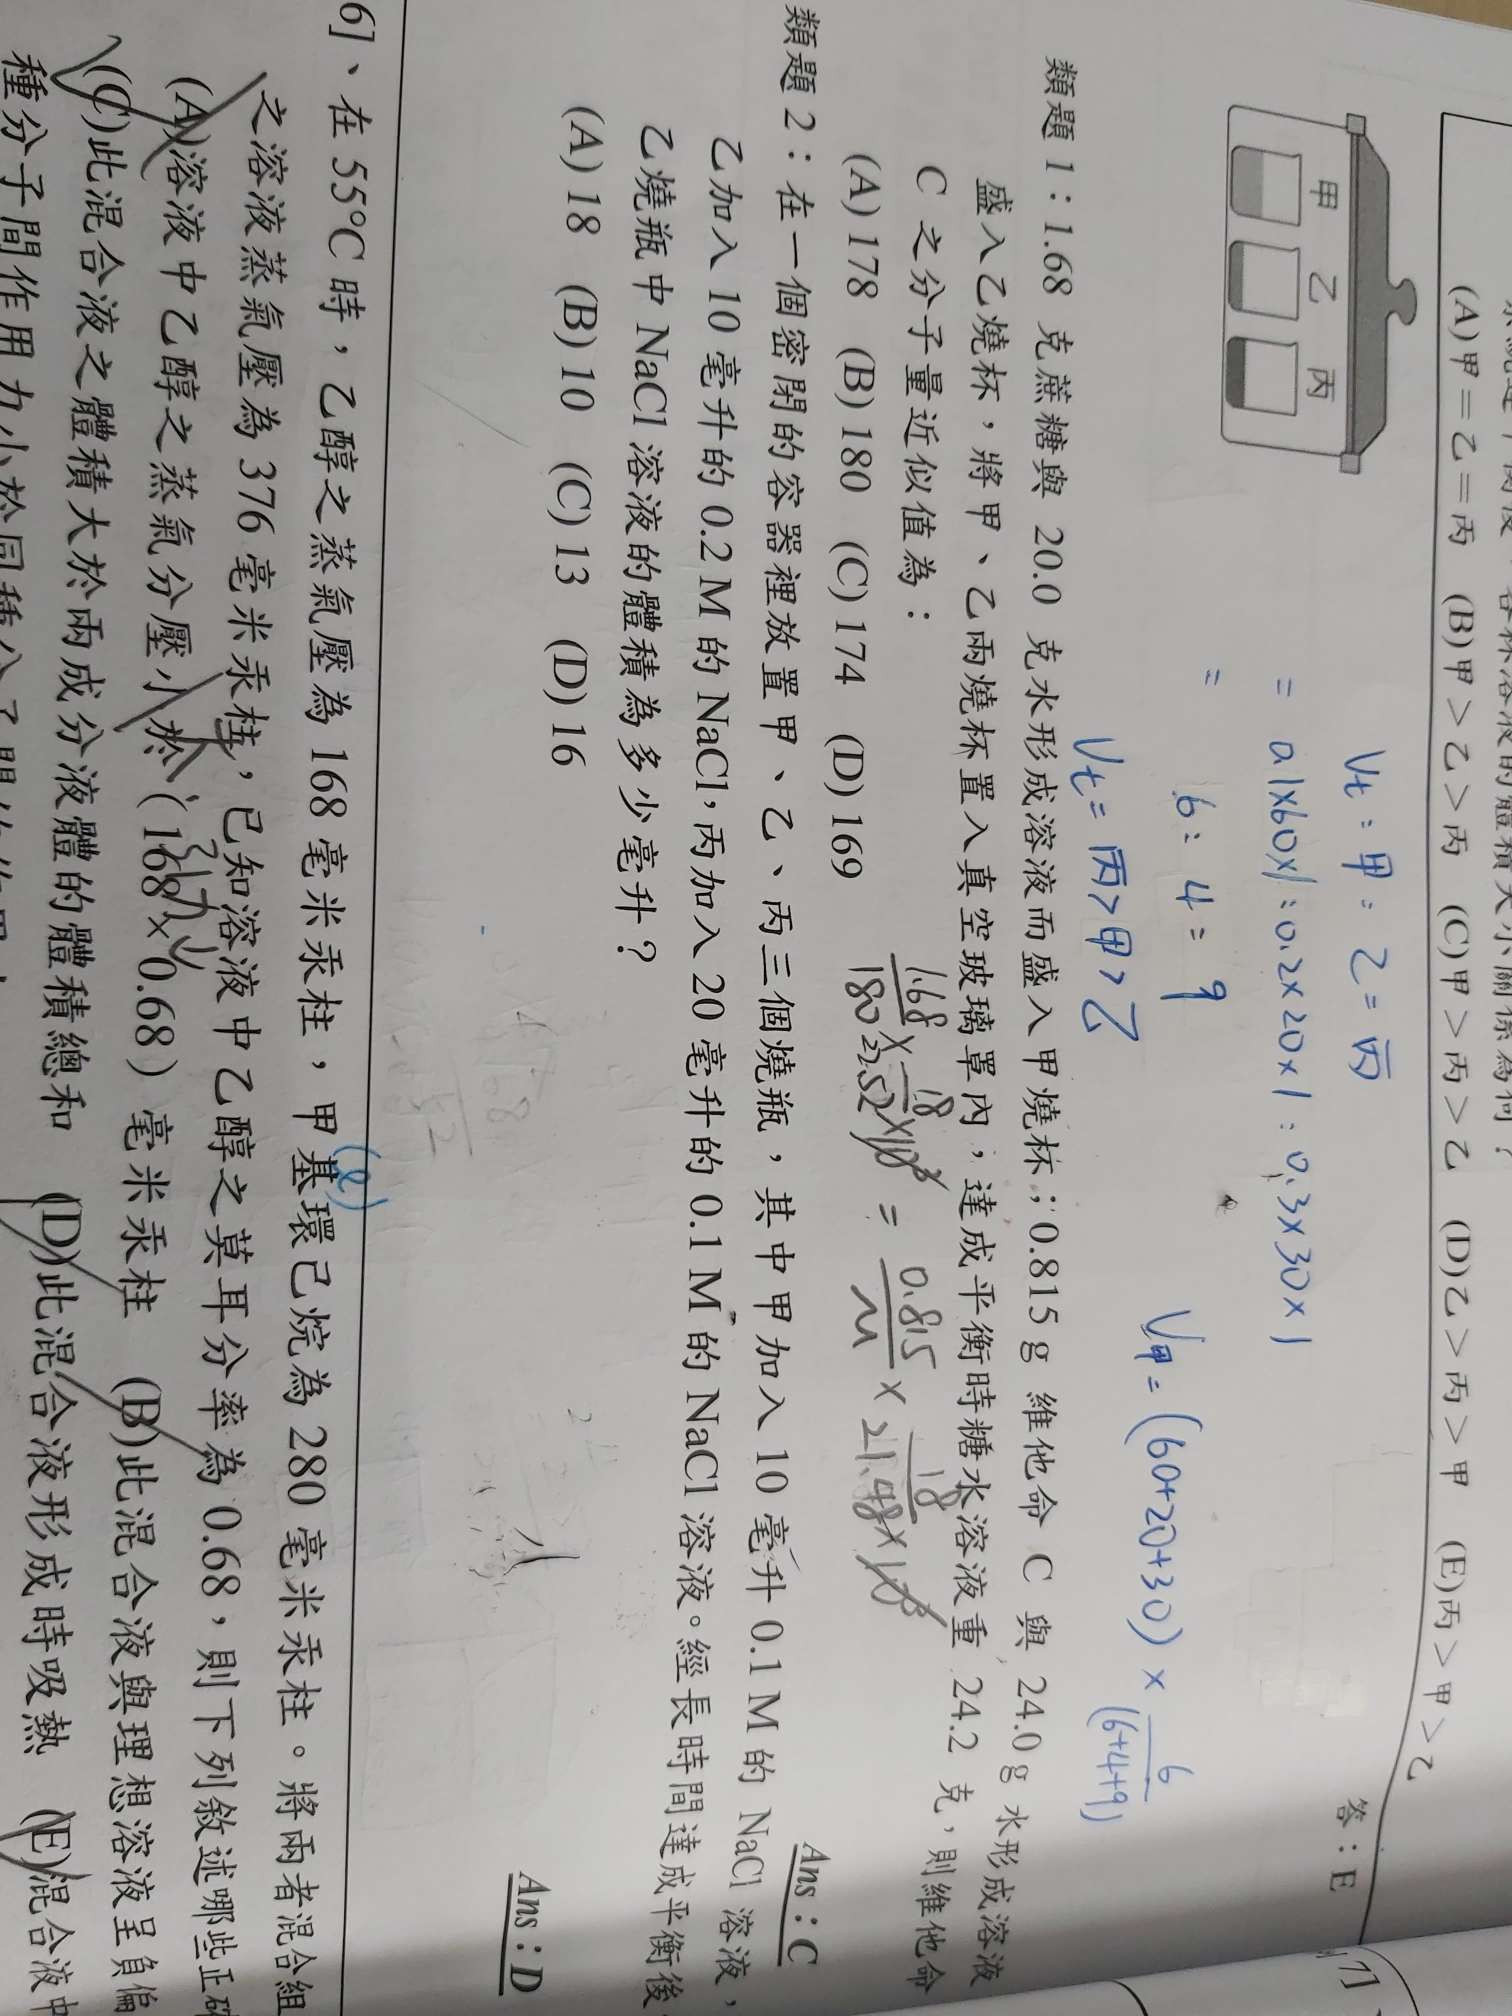 (A)甲=乙=丙 (B)甲>乙>丙 (C)甲>丙>乙 (D)乙>丙>甲 (E)丙>甲>乙
答：E
甲 乙 丙
Vt : 甲 : 乙 = 丙
= 0.1×60×1 : 0.2×20×1 : 0.3×30×1
= 6 : 4 : 9
Vt = 丙>甲>乙
V甲 = (60+20+30) × 6/(6+4+9)
類題 1：1.68 克蔗糖與 20.0 克水形成溶液而盛入甲燒杯；0.815 g 維他命 C 與 24.0 g 水形成溶液
盛入乙燒杯，將甲、乙兩燒杯置入真空玻璃罩內，達成平衡時糖水溶液重 24.2 克，則維他命
C 之分子量近似值為：
(A) 178 (B) 180 (C) 174 (D) 169
1.68/180 × 18/22.52×10³ = 0.815/M × 18/21.48×10³
Ans：C
類題 2：在一個密閉的容器裡放置甲、乙、丙三個燒瓶，其中甲加入 10 毫升 0.1 M 的 NaCl 溶液，
乙加入 10 毫升的 0.2 M 的 NaCl，丙加入 20 毫升的 0.1 M 的 NaCl 溶液。經長時間達成平衡後
乙燒瓶中 NaCl 溶液的體積為多少毫升？
(A) 18 (B) 10 (C) 13 (D) 16
Ans：D
6]、在 55°C 時，乙醇之蒸氣壓為 168 毫米汞柱，甲基環己烷為 280 毫米汞柱。將兩者混合組
(l)
之溶液蒸氣壓為 376 毫米汞柱，已知溶液中乙醇之莫耳分率為 0.68，則下列敘述哪些正確
(A)溶液中乙醇之蒸氣分壓小於（168×0.68）毫米汞柱 (B)此混合液與理想溶液呈負偏
(C)此混合液之體積大於兩成分液體的體積總和 (D)此混合液形成時吸熱 (E)混合液中
種分子間作用力小於同種分子間